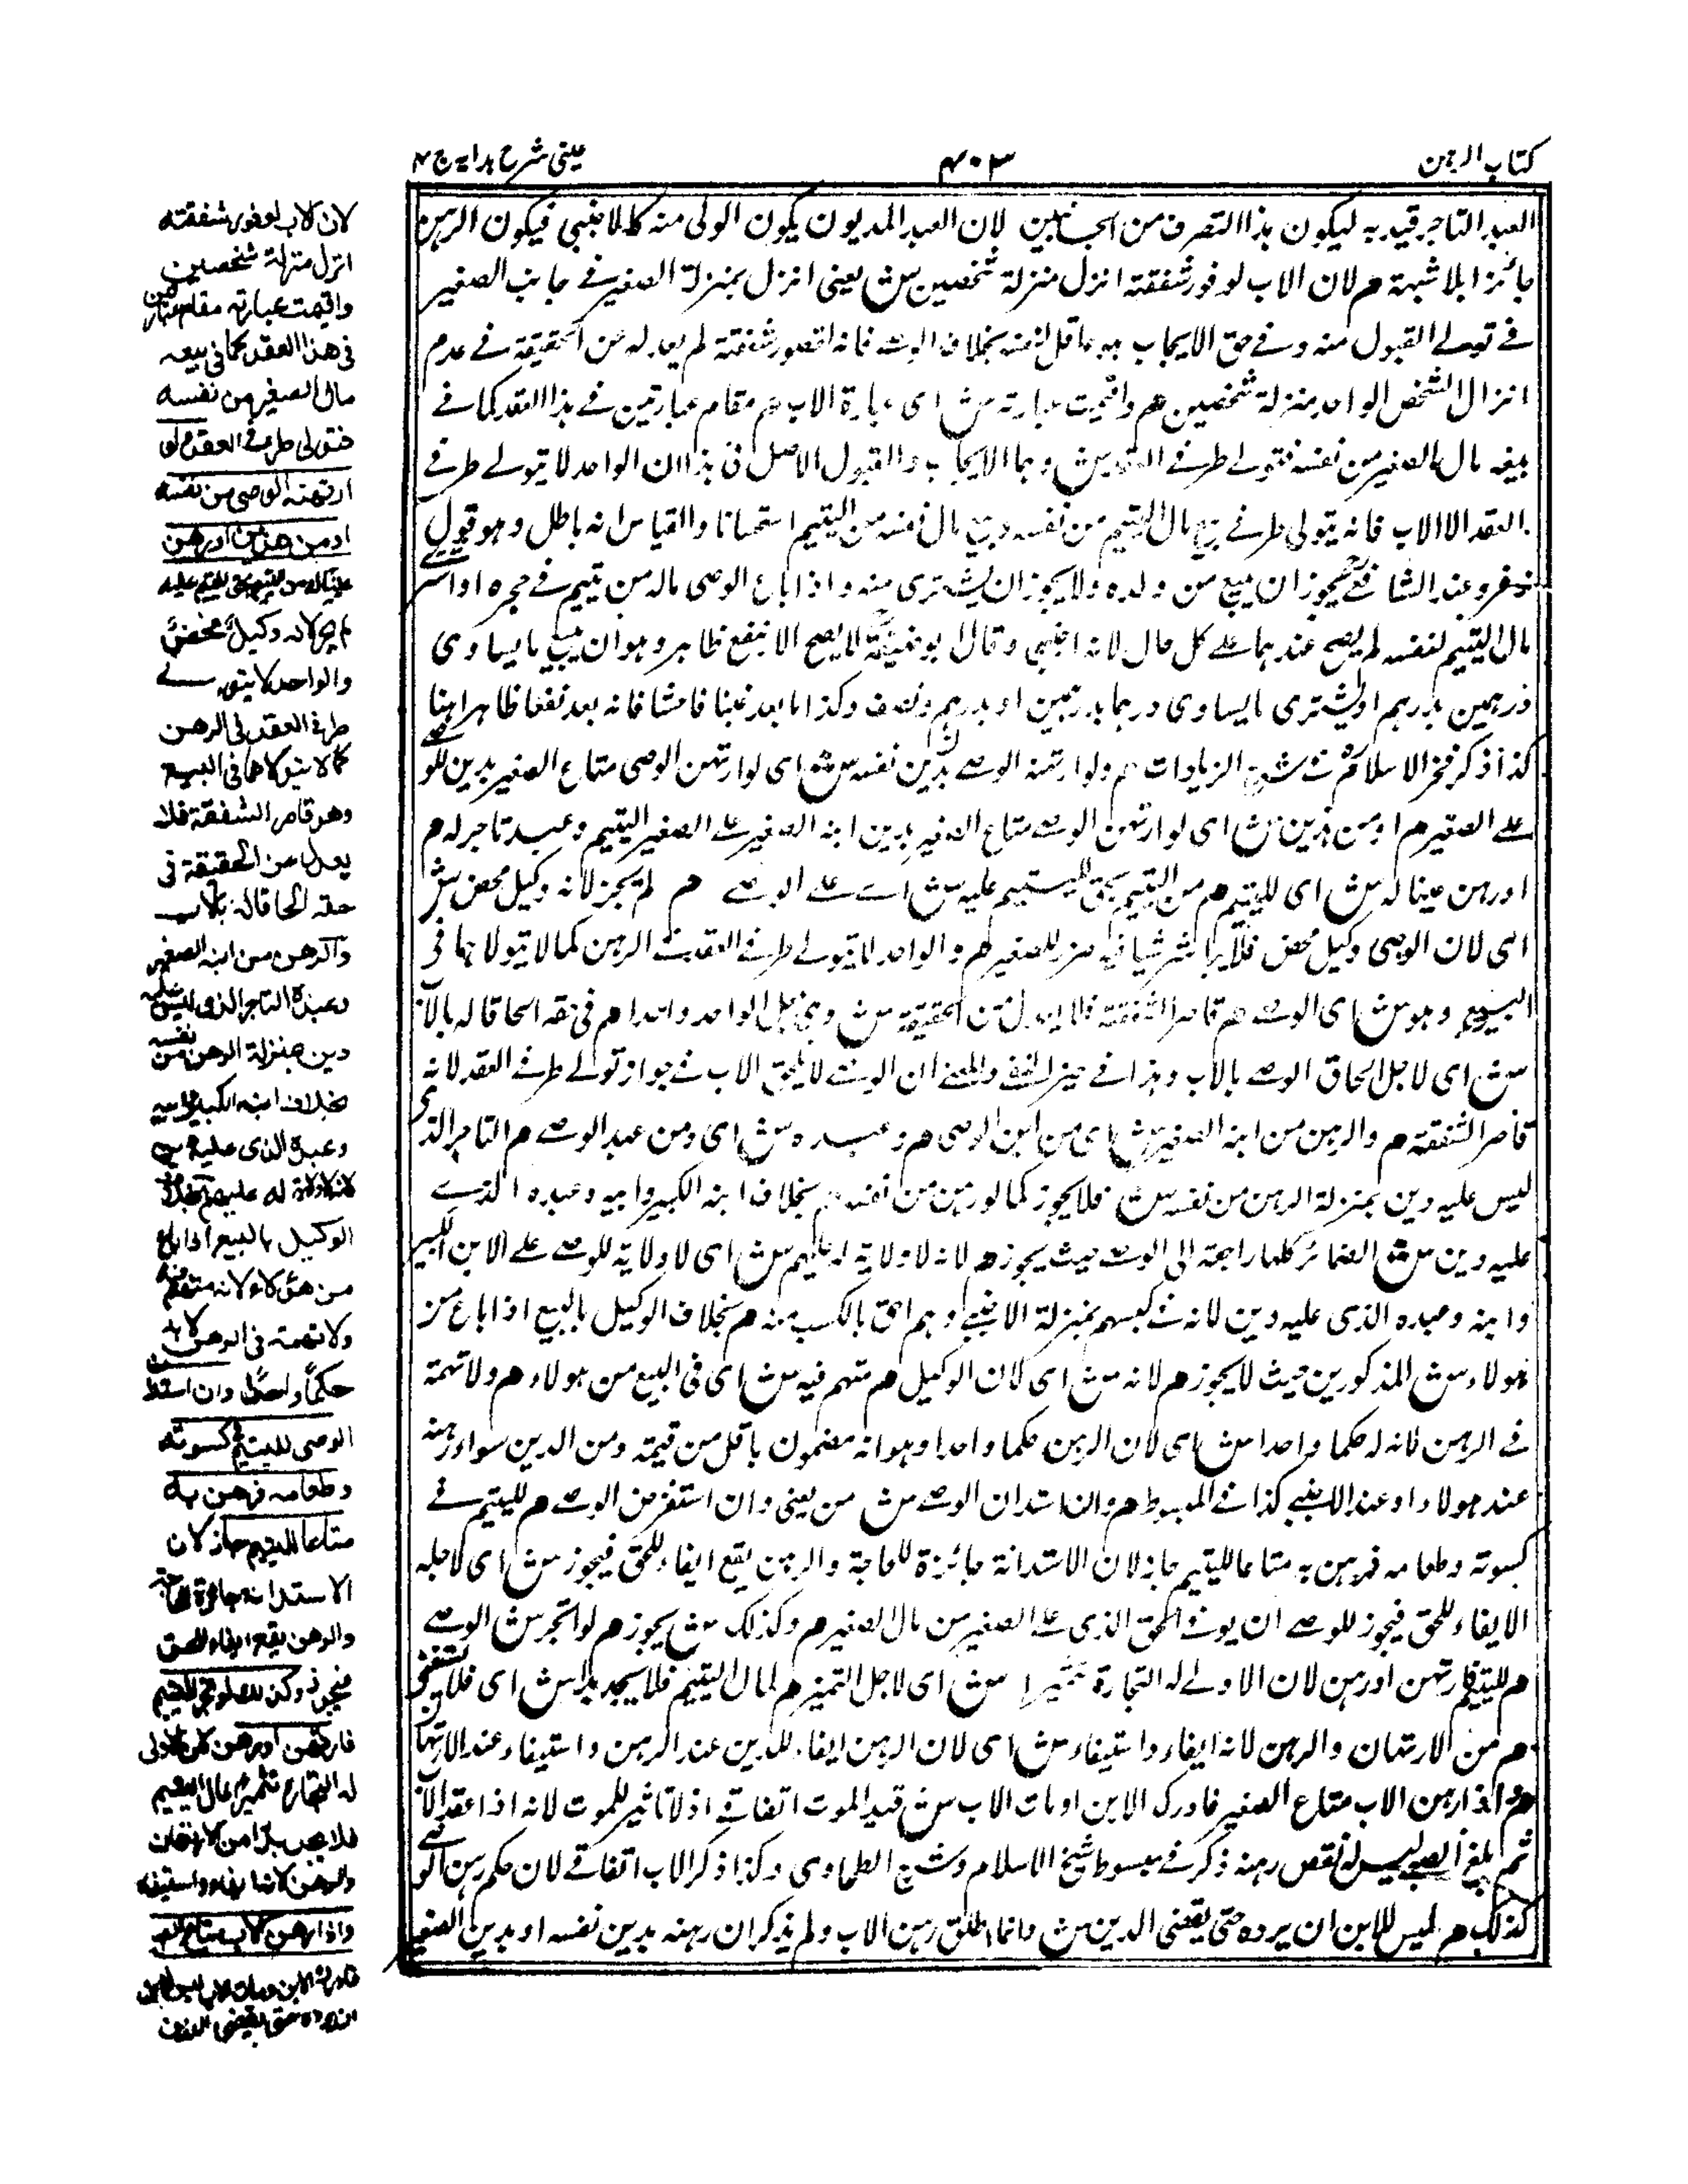 كتاب الرهن
٤٠٣
عينى شرح هدايه ج ٤
العبد التاجر قيد به ليكون هذا التصرف من الجانبين لان العبد المديون يكون المولى منه كالاجنبي فيكون الرهن
جائزا بلا شبهة م لان الاب لوفور شفقته انزل منزلة شخصين ش يعنى انزل بمنزلة الصغير في جانب الصغير
في تولى القبول منه وفي حق الايجاب لنفسه بخلاف الوصى فانه لقصور شفقته لم يعدل عن الحقيقة في عدم
انزال الشخص الواحد منزلة شخصين م واقيمت عبارته ش اى عبارة الاب م مقام عبارتين في هذا العقد كما في
بيعه مال الصغير من نفسه فتولى طرفي العقد ش وهما الايجاب والقبول الاصل في هذا ان الواحد لا يتولى طرفي
العقد الا الاب فانه يتولى طرفي بيع مال اليتيم من نفسه وبيع مال نفسه من اليتيم استحسانا والقياس انه باطل وهو قول
زفر وعند الشافعى يجوز ان يبيع من ولده ولا يجوز ان يشترى منه واذا باع الوصى ماله من يتيم في حجره او اشترى
مال اليتيم لنفسه لم يصح عندهما على كل حال لانه اجنبى وقال ابو حنيفة لا يصح الا بنفع ظاهر وهو ان يبيع ما يساوى
درهمين بدرهم او يشترى ما يساوى درهما بدرهمين او بدرهم ونصف وكذا ما يعد غبنا فاحشا فانه يعد نفعا ظاهرا هنا
كذا ذكر فخر الاسلام في شرح الزيادات م ولو ارتهنه الوصى بدين نفسه ش اى لو ارتهن الوصى متاع الصغير بدين للوصى
على الصغير م او من هذين ش اى لو ارتهن الوصى متاع الصغير بدين ابنه الصغير على الصغير اليتيم وعبد تاجر له م
او رهن عينا له ش اى لليتيم م من اليتيم بحق لليتيم عليه ش اى على الوصى م لم يجز لانه وكيل محض ش
اى لان الوصى وكيل محض فلا يباشر شيا فيه ضرر للصغير م والواحد لا يتولى طرفي العقد في الرهن كما لا يتولاهما في
البيع وهو ش اى الوصى م قاصر الشفقة فلا يعدل عن الحقيقة ش وهى جعل الواحد واحدا م في حقه الحاقا له بالاب
ش اى لاجل الحاق الوصى بالاب وهذا في حيز النفى والمعنى ان الوصى لا يلحق الاب في جواز تولى طرفي العقد لانه
قاصر الشفقة م والرهن من ابنه الصغير ش اى من ابن الوصى م وعبده ش اى ومن عبد الوصى م التاجر الذى
ليس عليه دين بمنزلة الرهن من نفسه ش فلا يجوز كما لو رهن من نفسه م بخلاف ابنه الكبير وابيه وعبده الذى
عليه دين ش الضمائر كلها راجعة الى الوصى حيث يجوز م لانه لا ولاية له عليهم ش اى لا ولاية للوصى على الابن الكبير
وابنه وعبده الذى عليه دين لانه في كسبهم بمنزلة الاجنبى وهم احق بالكسب منه م بخلاف الوكيل بالبيع اذا باع من
هولاء ش المذكورين حيث لا يجوز م لانه ش اى لان الوكيل م متهم فيه ش اى في البيع من هولاء م ولا تهمة
في الرهن لانه له حكما واحدا ش اى لان الرهن حكما واحدا وهو انه مضمون باقل من قيمته ومن الدين سواء رهنه
عند هولاء او عند الاجنبى كذا في المبسوط م وان استدان الوصى ش يعنى وان استقرض الوصى م لليتيم في
كسوته وطعامه فرهن به متاعا لليتيم جاز لان الاستدانة جائزة للحاجة والرهن يقع ايفاء للحق فيجوز ش اى لاجله
الايفاء للحق فيجوز للوصى ان يوفى الحق الذى على الصغير من مال الصغير م وكذلك ش يجوز م لو اتجر ش الوصى
م لليتيم فارتهن او رهن لان الاولى له التجارة تثميرا ش اى لاجل التثمير م لمال اليتيم فلا يجد بدا ش اى فلا يستغنى
م من الارتهان والرهن لانه ايفاء واستيفاء ش اى لان الرهن ايفاء للدين عند الرهن واستيفاء عند الارتهان
م واذا رهن الاب متاع الصغير فادرك الابن او مات الاب ش قيد الموت اتفاقى اذ لا تاثير للموت لانه اذا عقد الاب
ثم بلغ الصبى ليس له نقض رهنه ذكر في مبسوط شيخ الاسلام وشرح الطحاوى وكذا ذكر الاب اتفاقى لان حكم رهن الوصى
كذلك م ليس للابن ان يرده حتى يقضى الدين ش وانما اطلق رهن الاب ولم يذكر ان رهنه بدين نفسه او بدين الصغير
لان الاب لوفور شفقته
انزل منزلة شخصين
واقيمت عبارته مقام عبارتين
فى هذا العقد كما فى بيعه
مال الصغير من نفسه
فتولى طرفى العقد ولو
ارتهنه الوصى من نفسه
او من هذين او رهن
عينا له من اليتيم بحق لليتيم عليه
لم يجز لانه وكيل محض
والواحد لا يتولى
طرفى العقد فى الرهن
كما لا يتولاهما فى البيع
وهو قاصر الشفقة فلا
يعدل عن الحقيقة فى
حقه الحاقا له بالاب
والرهن من ابنه الصغير
وعبده التاجر الذى ليس عليه
دين بمنزلة الرهن من نفسه
بخلاف ابنه الكبير وابيه
وعبده الذى عليه دين
لانه لا ولاية له عليهم بخلاف
الوكيل بالبيع اذا باع
من هؤلاء لانه متهم فيه
ولا تهمة فى الرهن لان له
حكماً واحداً وان استدان
الوصى لليتيم فى كسوته
وطعامه فرهن به
متاعا لليتيم جاز لان
الاستدانة جائزة للحاجة
والرهن يقع ايفاء للحق
فيجوز وكذلك لو اتجر لليتيم
فارتهن او رهن لان الاولى
له التجارة تثميرا لمال اليتيم
فلا يجد بدا من الارتهان
والرهن لانه ايفاء واستيفاء
واذا رهن الاب متاع الصغير
فادرك الابن ومات الاب ليس للابن
ان يرده حتى يقضى الدين